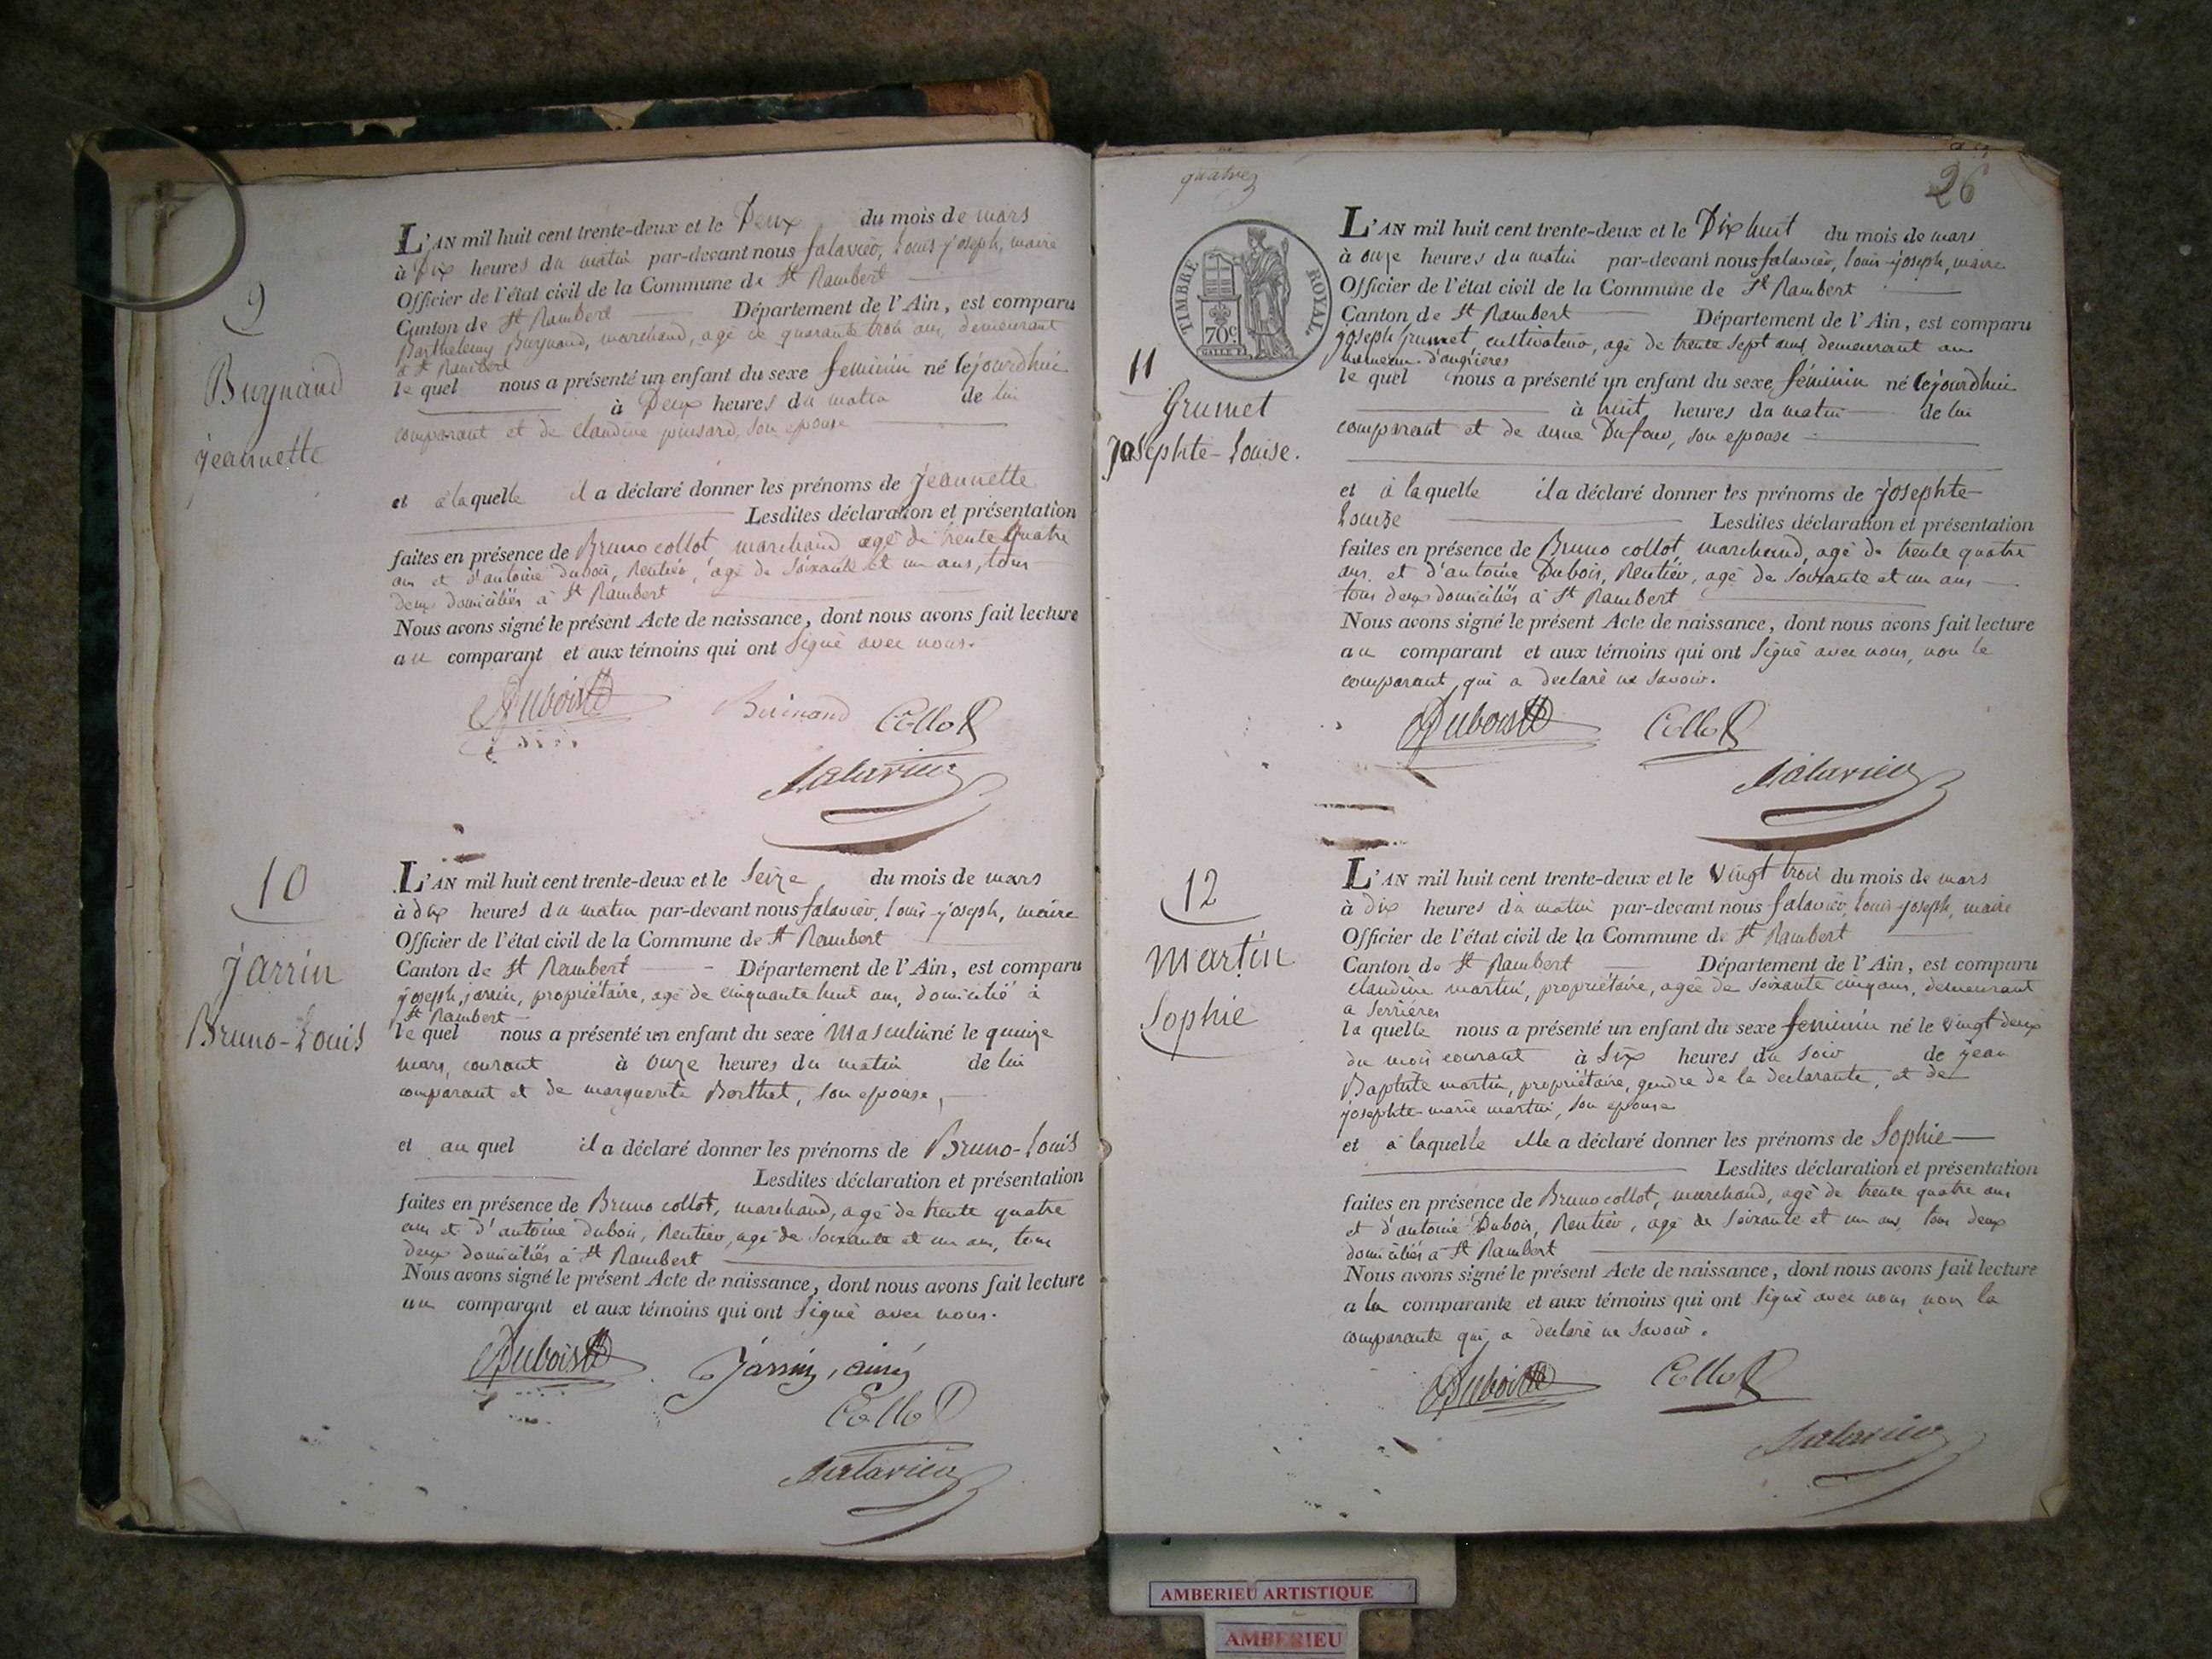 9
Buynand
jeannette
L'AN mil huit cent trente-deux et le Deux du mois de mars
à Dix heures du matin par-devant nous falavier, louis-joseph, maire
Officier de l'état civil de la Commune de St Rambert
Canton de St Rambert Département de l'Ain, est comparu
Barthelemy Buynand, marchand, agé de quarante trois ans, demeurant
a St Rambert
le quel nous a présenté un enfant du sexe feminin né lejourdhui
à Deux heures du matin de lui
comparant et de claudine pinsard, son epouse
et a la quelle il a déclaré donner les prénoms de jeannette
Lesdites déclaration et présentation
faites en présence de Bruno collot marchand agé de trente quatre
ans et d'antoine dubois, Rentier, agé de soixante et un ans, tous
deux domiciliés à St Rambert
Nous avons signé le présent Acte de naissance, dont nous avons fait lecture
au comparant et aux témoins qui ont signé avec nous.
Dubois Buinand Collot
falavier
10
jarrin
Bruno-Louis
L'AN mil huit cent trente-deux et le seize du mois de mars
à dix heures du matin par-devant nous falavier, louis-joseph, maire
Officier de l'état civil de la Commune de St Rambert
Canton de St Rambert Département de l'Ain, est comparu
joseph jarrin, propriétaire, agé de cinquante huit ans, domicilié à
St Rambert
le quel nous a présenté un enfant du sexe Masculin né le quinze
mars, courant à onze heures du matin de lui
comparant et de marguerite Berthet, son epouse,
et au quel il a déclaré donner les prénoms de Bruno-Louis
Lesdites déclaration et présentation
faites en présence de Bruno collot, marchand, agé de trente quatre
ans et d'antoine dubois, Rentier, agé de soixante et un ans, tous
deux domiciliés à St Rambert
Nous avons signé le présent Acte de naissance, dont nous avons fait lecture
au comparant et aux témoins qui ont signé avec nous.
Dubois jarrin, ainé
Collot
falavier
26
TIMBRE ROYAL
70c.
11
Grumet
josephte-Louise.
L'AN mil huit cent trente-deux et le Dix huit du mois de mars
à onze heures du matin par-devant nous falavier, louis-joseph, maire
Officier de l'état civil de la Commune de St Rambert
Canton de St Rambert Département de l'Ain, est comparu
joseph grumet, cultivateur, agé de trente sept ans, demeurant au
hameau d'angrieres
le quel nous a présenté un enfant du sexe féminin né lejourdhui
à huit heures du matin de lui
comparant et de anne Dufour, son epouse
et à la quelle il a déclaré donner les prénoms de josephte-
Louise Lesdites déclaration et présentation
faites en présence de Bruno collot, marchand, agé de trente quatre
ans, et d'antoine Dubois, Rentier, agé de soixante et un ans
tous deux domiciliés à St Rambert
Nous avons signé le présent Acte de naissance, dont nous avons fait lecture
au comparant et aux témoins qui ont signé avec nous, non le
comparant, qui a declaré ne savoir.
Dubois Collot
falavier
12
Martin
Sophie
L'AN mil huit cent trente-deux et le Vingt trois du mois de mars
à dix heures du matin par-devant nous falavier, louis-joseph, maire
Officier de l'état civil de la Commune de St Rambert
Canton de St Rambert Département de l'Ain, est comparu
claudine martin, propriétaire, agée de soixante cinq ans, demeurant
a serrières
la quelle nous a présenté un enfant du sexe feminin né le vingt deux
du mois courant à Six heures du soir de jean
Baptiste martin, propriétaire, gendre de la declarante, et de
josephte-marie martin, son epouse
et à laquelle elle a déclaré donner les prénoms de Sophie
Lesdites déclaration et présentation
faites en présence de Bruno collot, marchand, agé de trente quatre ans
et d'antoine Dubois, Rentier, agé de soixante et un ans, tous deux
domiciliés à St Rambert
Nous avons signé le présent Acte de naissance, dont nous avons fait lecture
a la comparante et aux témoins qui ont signé avec nous, non la
comparante qui a declaré ne savoir.
Dubois Collot
falavier
AMBERIEU ARTISTIQUE
AMBERIEU